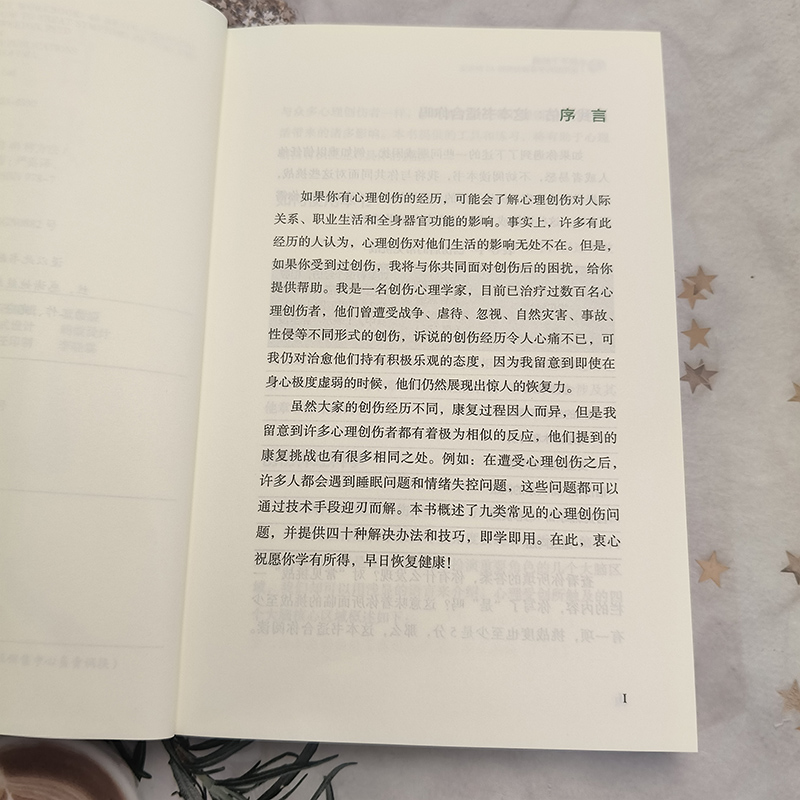 序 言
如果你有心理创伤的经历，可能会了解心理创伤对人际
关系、职业生活和全身器官功能的影响。事实上，许多有此
经历的人认为，心理创伤对他们生活的影响无处不在。但是，
如果你受到过创伤，我将与你共同面对创伤后的困扰，给你
提供帮助。我是一名创伤心理学家，目前已治疗过数百名心
理创伤者，他们曾遭受战争、虐待、忽视、自然灾害、事故、
性侵等不同形式的创伤，诉说的创伤经历令人心痛不已，可
我仍对治愈他们持有积极乐观的态度，因为我留意到即使在
身心极度虚弱的时候，他们仍然展现出惊人的恢复力。
虽然大家的创伤经历不同，康复过程因人而异，但是我
留意到许多心理创伤者都有着极为相似的反应，他们提到的
康复挑战也有很多相同之处。例如：在遭受心理创伤之后，
许多人都会遇到睡眠问题和情绪失控问题，这些问题都可以
通过技术手段迎刃而解。本书概述了九类常见的心理创伤问
题，并提供四十种解决办法和技巧，即学即用。在此，衷心
祝愿你学有所得，早日恢复健康！
I